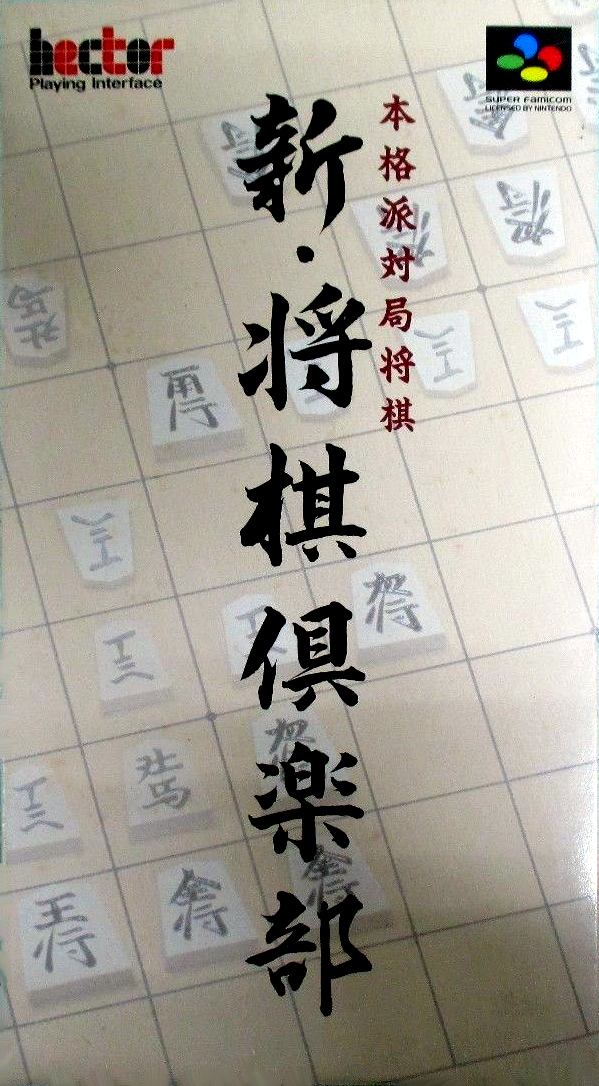 hector
Playing Interface
SUPER Famicom
LICENSED BY NINTENDO
本格派対局将棋
新・将棋倶楽部